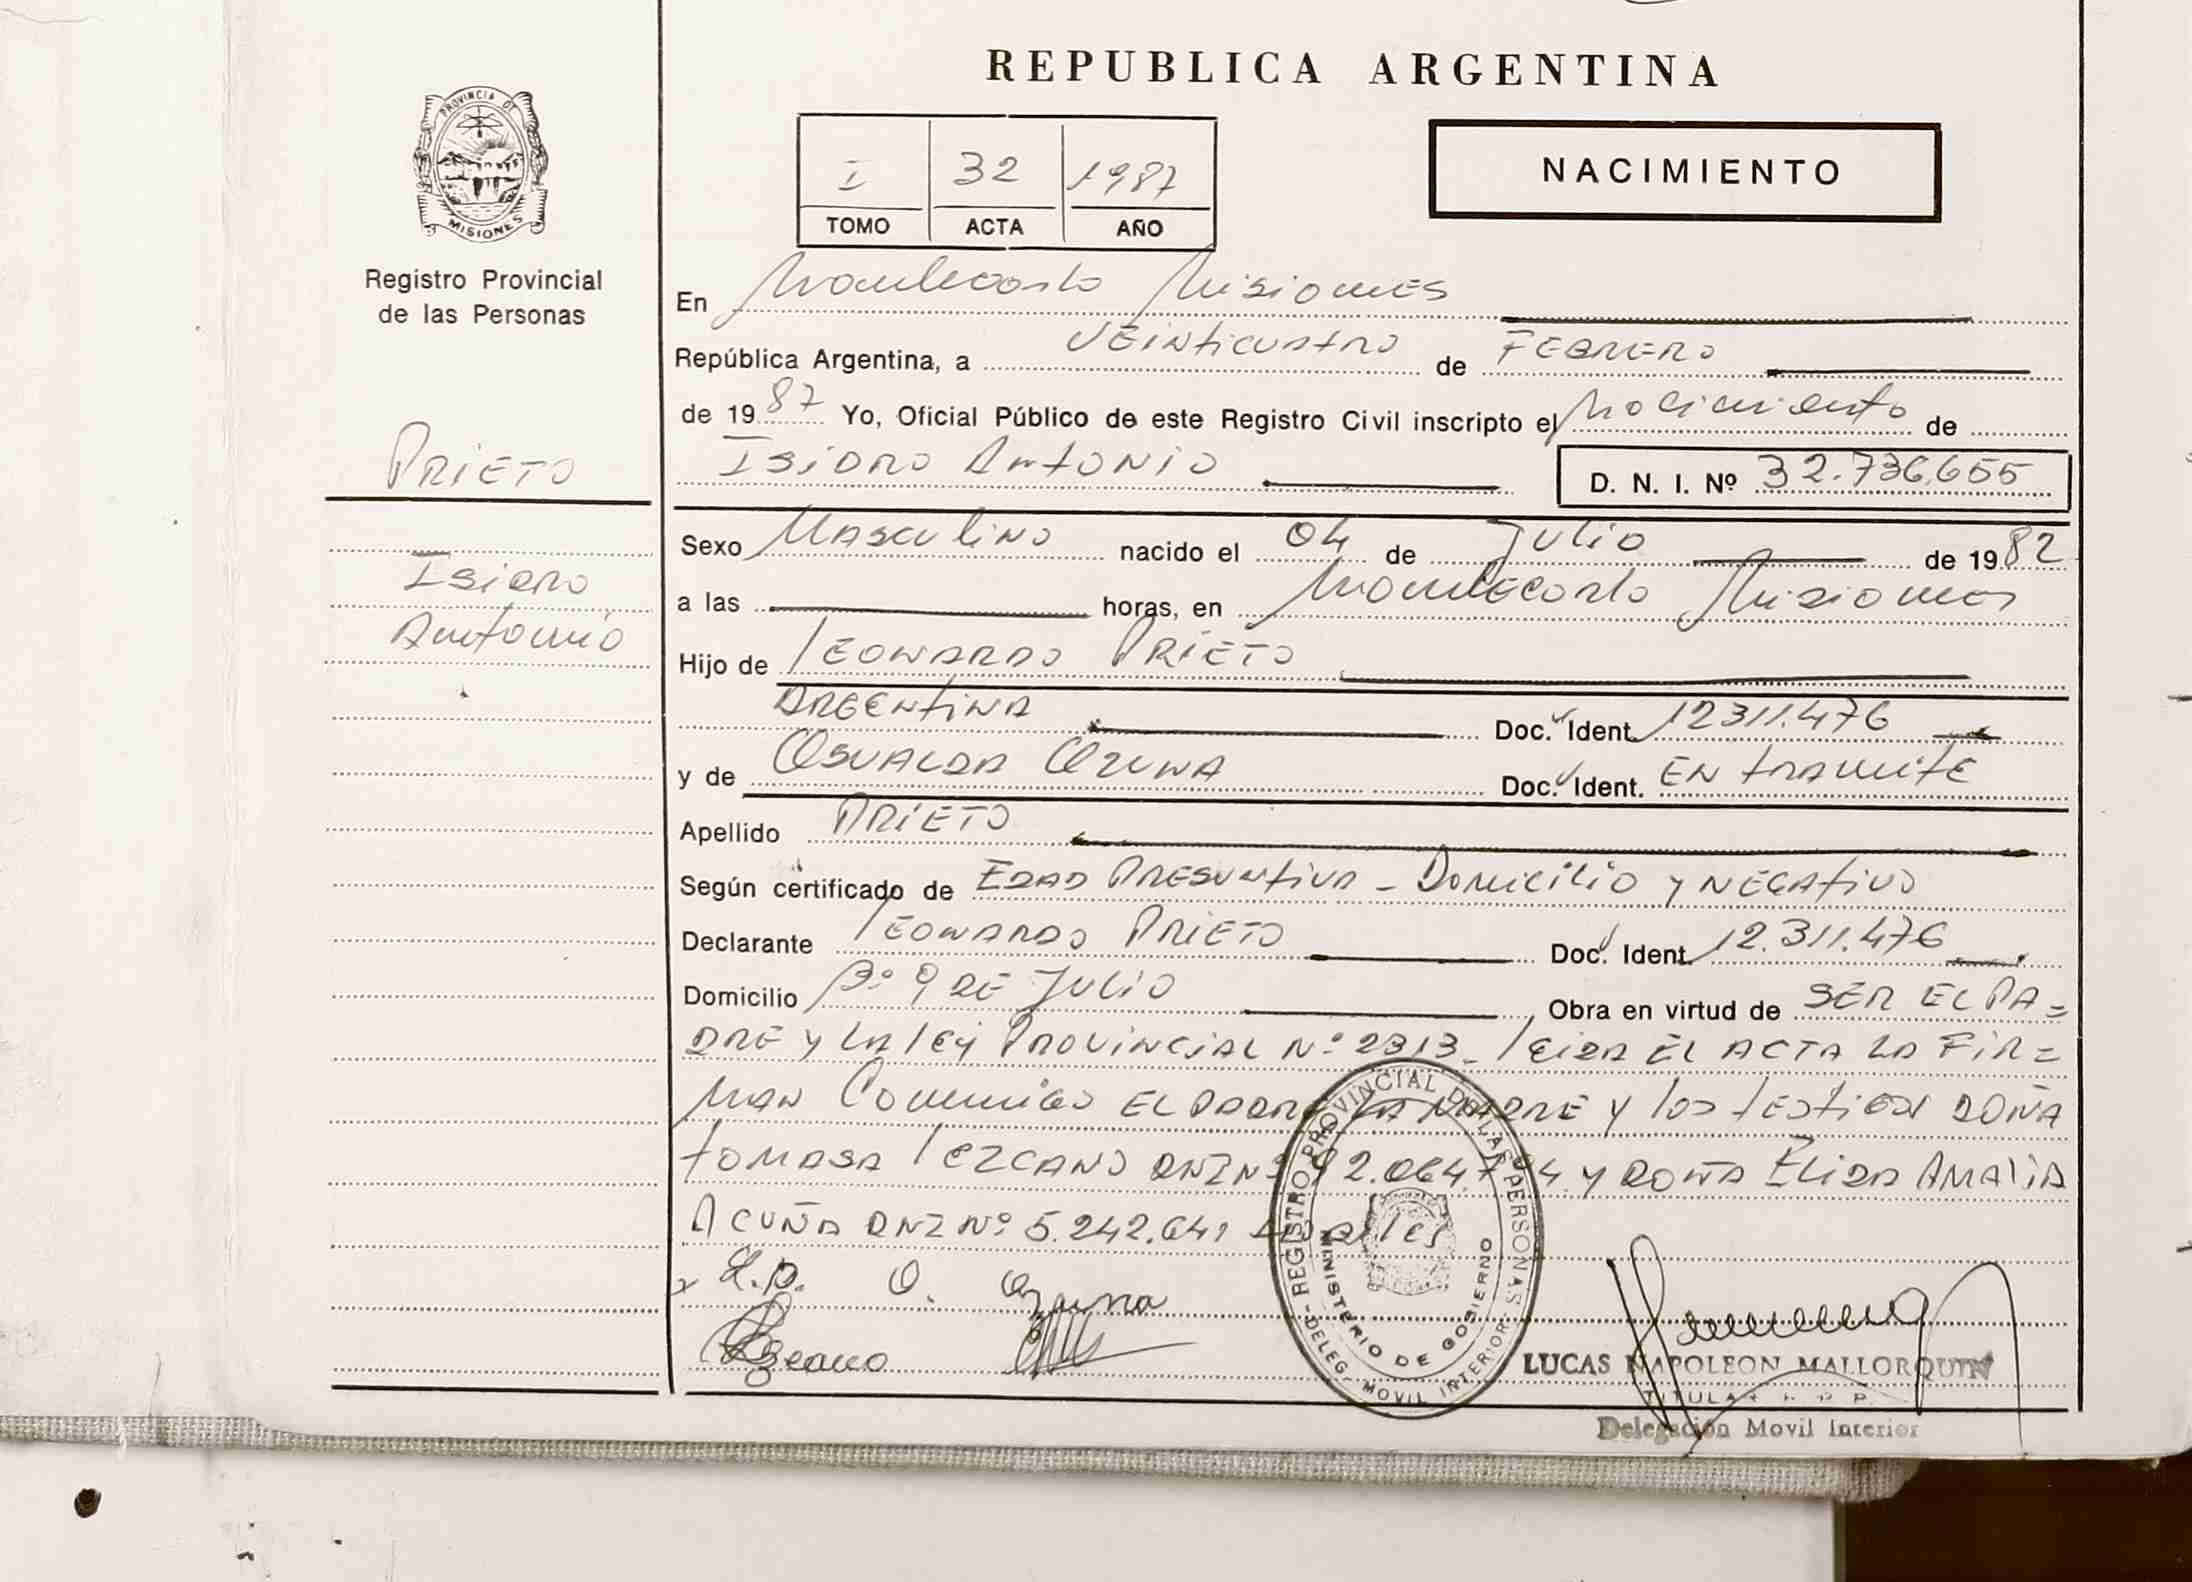 REPUBLICA ARGENTINA
PROVINCIA DE
MISIONES
Registro Provincial
de las Personas
I 32 1987
TOMO ACTA AÑO
NACIMIENTO
En Montecarlo Misiones
República Argentina, a Veinticuatro de Febrero
de 1987 Yo, Oficial Público de este Registro Civil inscripto el Nacimiento de
Isidro Antonio D. N. I. Nº 32.736.655
PRIETO
Isidro
Antonio
Sexo Masculino nacido el 04 de Julio de 1982
a las horas, en Montecarlo Misiones
Hijo de Leonardo Prieto
Argentina Doc. Ident. 12311.476
y de Osvalda Ozuna Doc. Ident. En tramite
Apellido Prieto
Según certificado de Edad Presuntiva - Domicilio y Negativo
Declarante Leonardo Prieto Doc. Ident. 12.311.476
Domicilio Bº 9 de Julio Obra en virtud de ser el pa=
dre y la ley Provincial Nº 2313- leida el acta la fir=
man conmigo el padre la madre y los testigos doña
tomasa lezcano DNI Nº 92.064.7 4 y doña Elida Amalia
Acuña DNI Nº 5.242.641
L.P. O. Ozuna
REGISTRO PROVINCIAL DE LAS PERSONAS
MINISTERIO DE GOBIERNO
DELEG. MOVIL INTERIOR
LUCAS NAPOLEON MALLORQUIN
TITULAR R. P. P.
Delegación Movil Interior